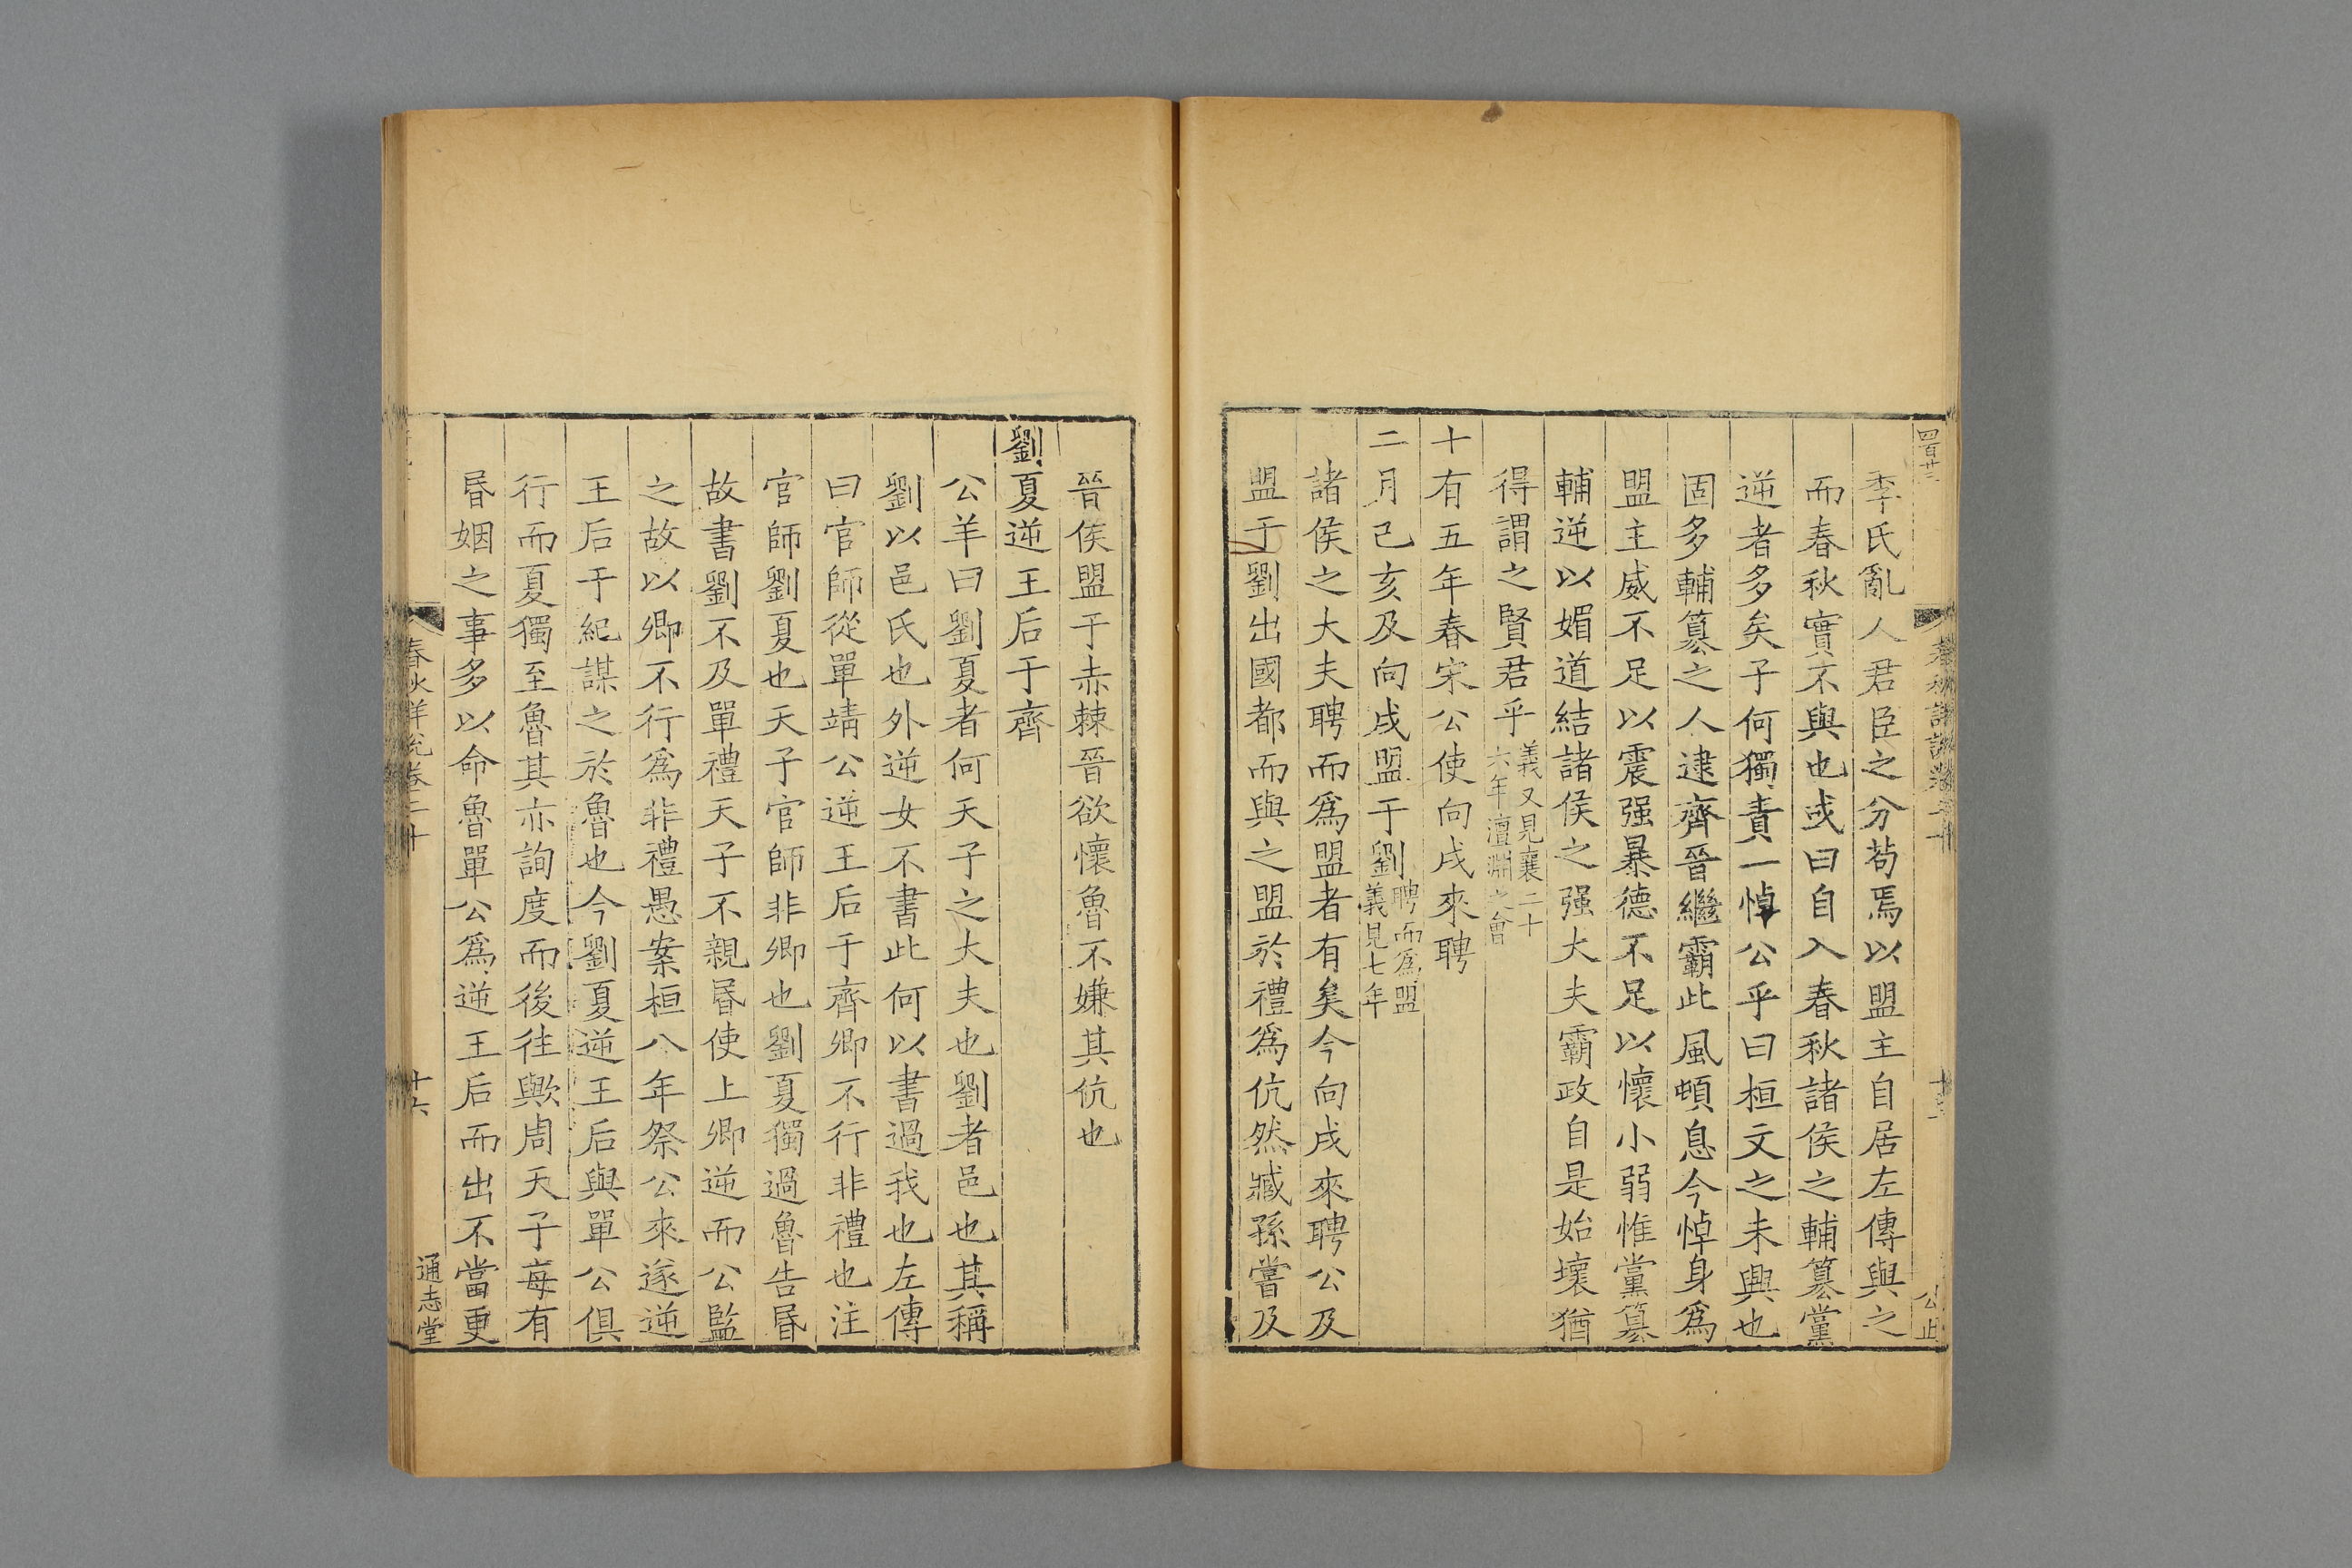 季氏亂人君臣之分茍焉以盟主自居左傳與之
而春秋實不與也或曰自入春秋諸侯之輔篡黨
逆者多矣子何獨責一悼公乎曰桓文之未興也
固多輔篡之人逮齊晉繼霸此風頓息今悼身爲
盟主威不足以震强暴德不足以懷小弱惟黨篡
輔逆以媚道結諸侯之强大夫霸政自是始壞猶
得謂之賢君乎義又見襄二十六年澶淵之會
十有五年春宋公使向戌來聘
二月己亥及向戌盟于劉聘而爲盟義見七年
諸侯之大夫聘而爲盟者有矣今向戌來聘公及
盟于劉出國都而與之盟於禮爲伉然臧孫嘗及
晉侯盟于赤棘晉欲懷魯不嫌其伉也
劉夏逆王后于齊
公羊曰劉夏者何天子之大夫也劉者邑也其稱
劉以邑氏也外逆女不書此何以書過我也左傳
曰官師從單靖公逆王后于齊卿不行非禮也注
官師劉夏也天子官師非卿也劉夏獨過魯告昬
故書劉不及單禮天子不親昬使上卿逆而公監
之故以卿不行爲非禮愚案桓八年祭公來遂逆
王后于紀謀之於魯也今劉夏逆王后與單公俱
行而夏獨至魯其亦詢度而後往歟周天子每有
昬姻之事多以命魯單公爲逆王后而出不當更
春秋詳說卷二十
十六
通志堂